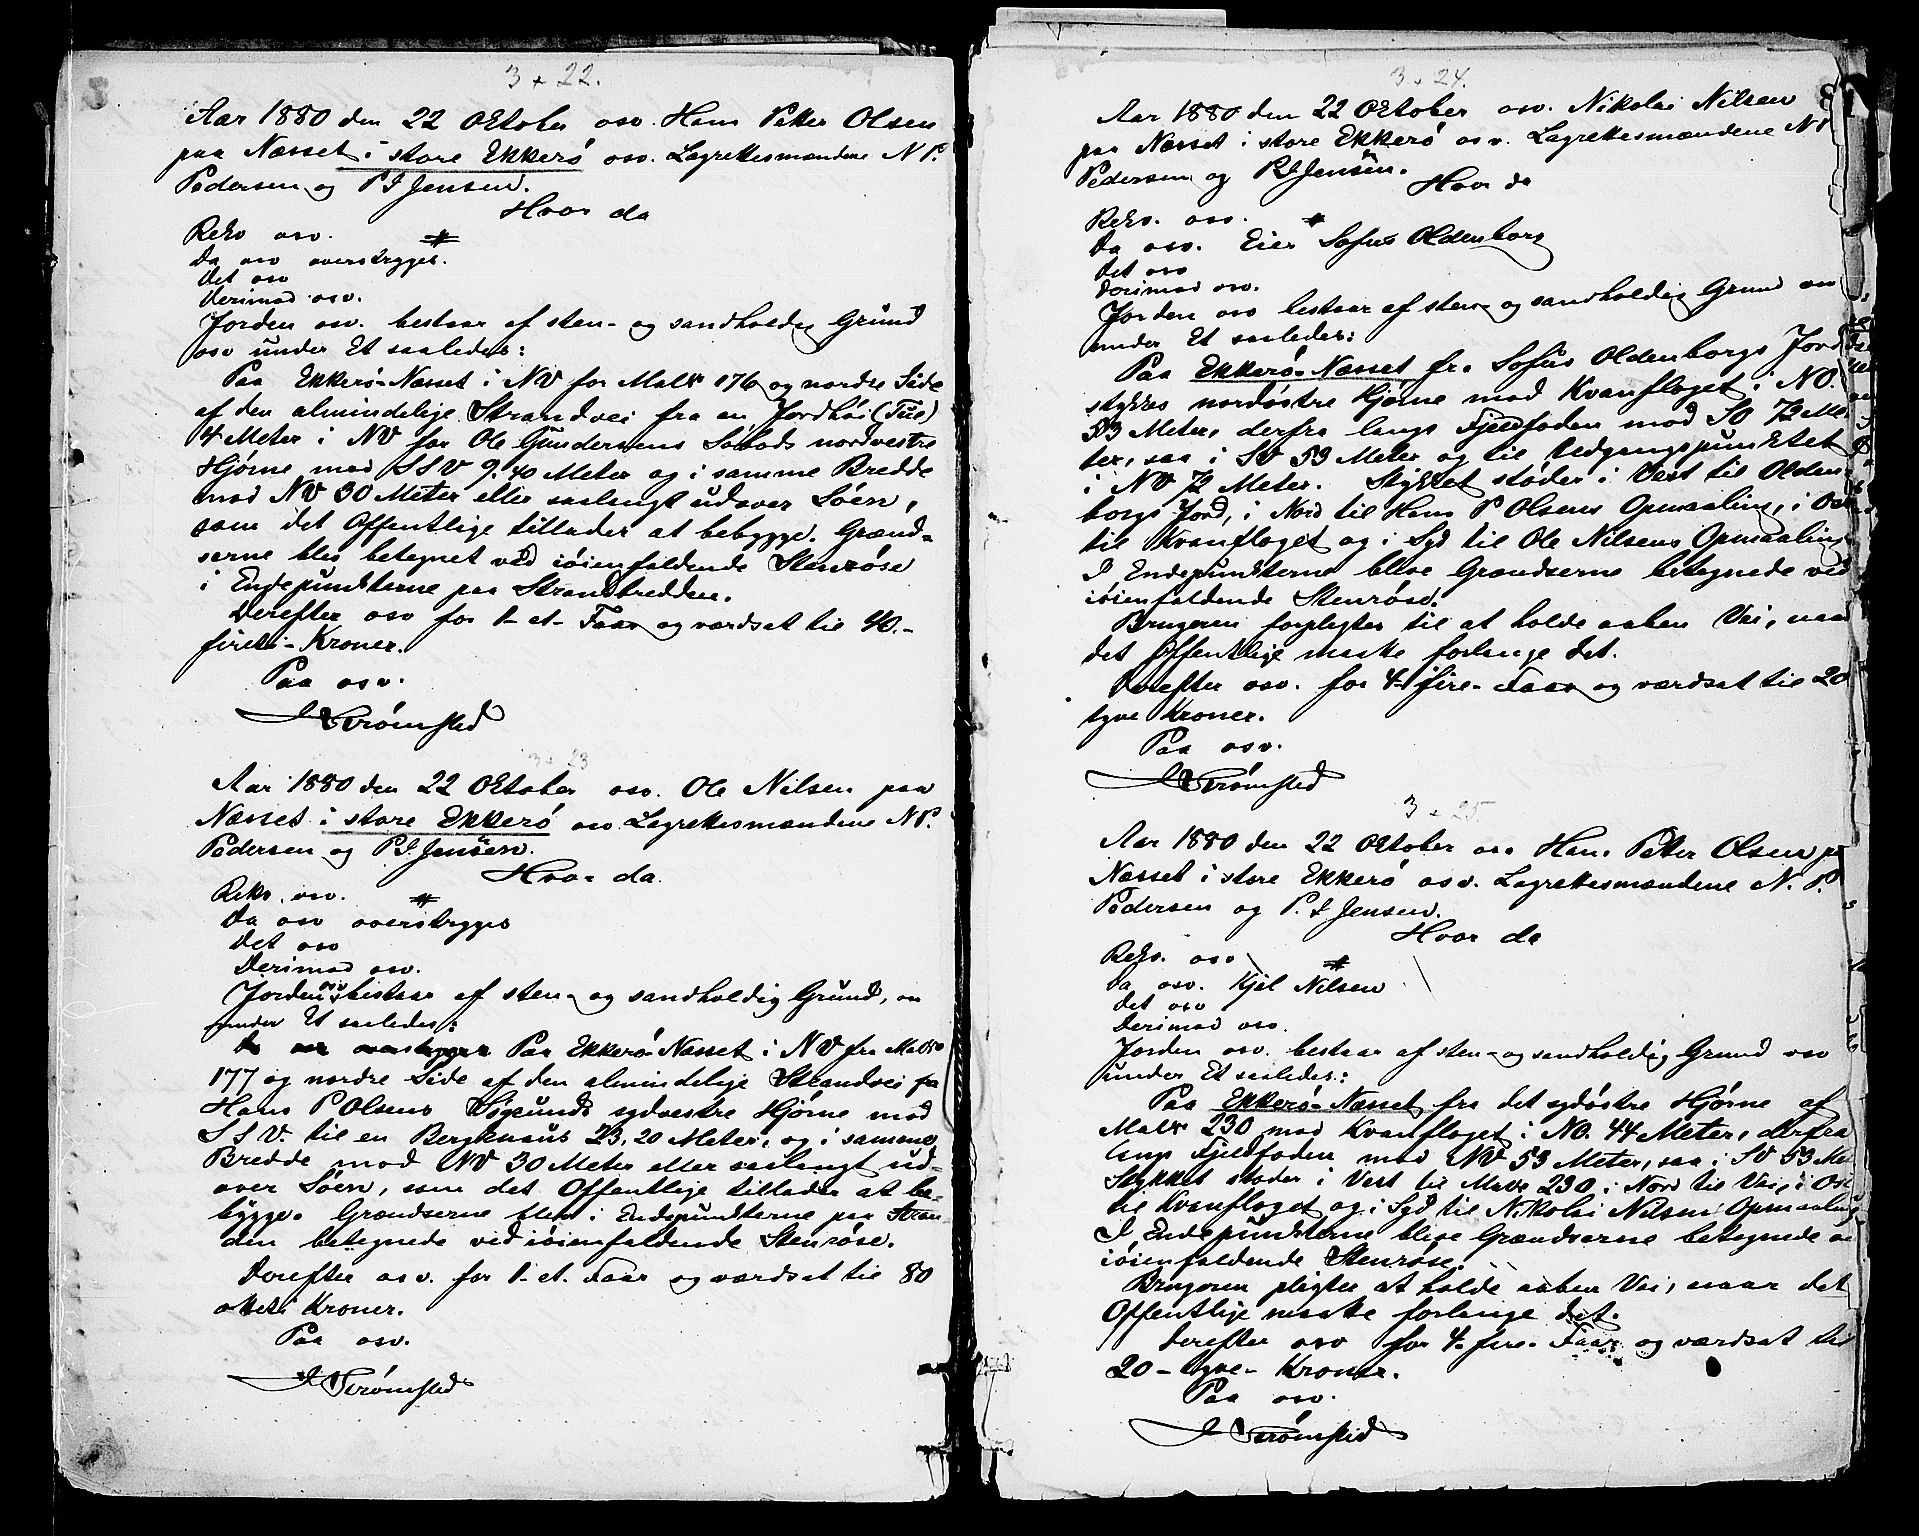 3 + 22.
Aar 1880 den 22 Oktober osv. Hans Petter Olsen
paa Næsset i store Ekkerö osv. Lagrettesmændene N P.
Pedersen og P I Jensen.
Hvor da
Rekv osv.
Da osv overstryges.
Det osv
Derimod osv.
Jorden osv. bestaar af sten- og sandholdig Grund
osv under Et saaledes:
Paa Ekkerö-Næsset i NV for Mats 176 og nordre Side
af den almindelige Strandvei fra en Jordhöi (Tue)
4 Meter i NV for Ole Gundersens Söbods nordvestre
Hjörne mod SSV 9.40 Meter og i samme Bredde
mod NV 30 Meter eller saalangt udover Söen,
som det Offentlige tillader at bebygge. Grænd-
serne blev betegnet ved iöienfaldende Stenröse
i Endepunkterne paa Strandbredden.
Derefter osv for 1- et- Faar og værdsat til 40.-
firti- Kroner.
Paa osv.
J Strömsted
3 + 23
Aar 1880 den 22 Oktober osv. Ole Nilsen paa
Næsset i store Ekkerö osv Lagrettesmændene N P.
Pedersen og P. I. Jensen.
Hvor da
Rekv. osv.
Da osv overstryges
Det osv
Derimod osv.
Jorden osv bestaar af sten- og sandholdig Grund, osv
under Et saaledes:
Paa Ekkerö Næsset i NV fra Mats
177 og nordre Side af den almindelige Strandvei fra
Hans P Olsens sydvestre Hjörne mod
SSV. til en Bergknaus 23,20 Meter, og i samme
Bredde mod NV 30 Meter eller saalangt ud-
over Söen, som det Offentlige tillader at be-
bygge. Grændserne blev i Endepunkterne paa Stran
den betegnede ved iöienfaldende Stenröse.
Derefter osv. for 1- et. Faar og værdsat til 80
otteti Kroner.
Paa osv.
J Strömsted
3 + 24.
Aar 1880 den 22 Oktober osv. Nikolai Nilsen
paa Næsset i store Ekkerö osv. Lagrettesmændene N P
Pedersen og P I Jensen.
Hvor da
Rekv. osv.
Da osv. Eier Sofus Oldenborg
Det osv
Derimod osv.
Jorden osv bestaar af sten- og sandholdig Grund osv
under Et saaledes:
Paa Ekkerö-Næsset fra Sofus Oldenborgs Jord
stykkes nordöstre Hjörne mod Kvanfloget i NO.
53 Meter, derfra langs Fjeldfoden mod SO 72 Me
ter, saa i SV 53 Meter og til Udgangspunktet
i NV 72 Meter. Stykket stöder i Vest til Olden-
borgs Jord, i Nord til Hans P Olsens Opmaaling, i Öst
til Kvanfloget og i Syd til Ole Nilsens Opmaaling.
I Endepunkterne bleve Grændserne betegnede ved
iöienfaldende Stenröse.
Brugeren forpligtes til at holde aaben Vei, naar
det Offentlige maatte forlange det.
Derefter osv. for 4- fire- Faar og værdsat til 20
tyve Kroner.
Paa osv.
J Strömsted
3 + 25.
Aar 1880 den 22 Oktober osv Hans Petter Olsen paa
Næsset i store Ekkerö osv. Lagrettesmændene N. P.
Pedersen og P. I Jensen.
Hvor da
Rekv. osv
Da osv. Kjel Nilsen
Det osv
Derimod osv.
Jorden osv. bestaar af sten- og sandholdig Grund osv
under Et saaledes:
Paa Ekkerö-Næsset fra det sydöstre Hjörne af
Mats 230 mod Kvanfloget i NO. 44 Meter, derfra
langs Fjeldfoden mod NV 53 Meter, saa i SV 53 Me
Stykket stöder i Vest til Mats 230 i Nord til Vei, i Öst
til Kvanfloget og i Syd til Nikolai Nilsens Opmaaling
I Endepunkterne bleve Grændserne betegnede ved
iöienfaldende Stenröse.
Brugeren pligter at holde aaben Vei, naar det
Offentlige maatte forlange det.
Derefter osv for 4- fire- Faar og værdsat til
20- tyve- Kroner.
Paa osv.
J Strömsted